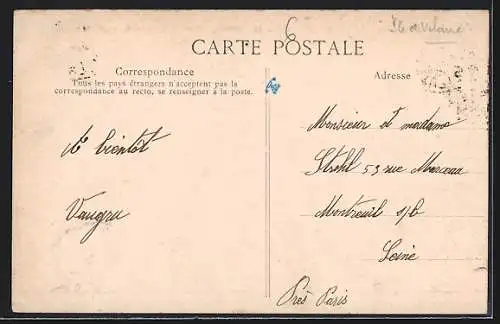 6
Ile et Vilaine
CARTE POSTALE
Correspondance
Tous les pays étrangers n'acceptent pas la
correspondance au recto, se renseigner à la poste.
Adresse
A bientôt
Vaugru
Monsieur et madame
Strehl 53 rue Marceau
Montreuil s/b
Seine
Près Paris